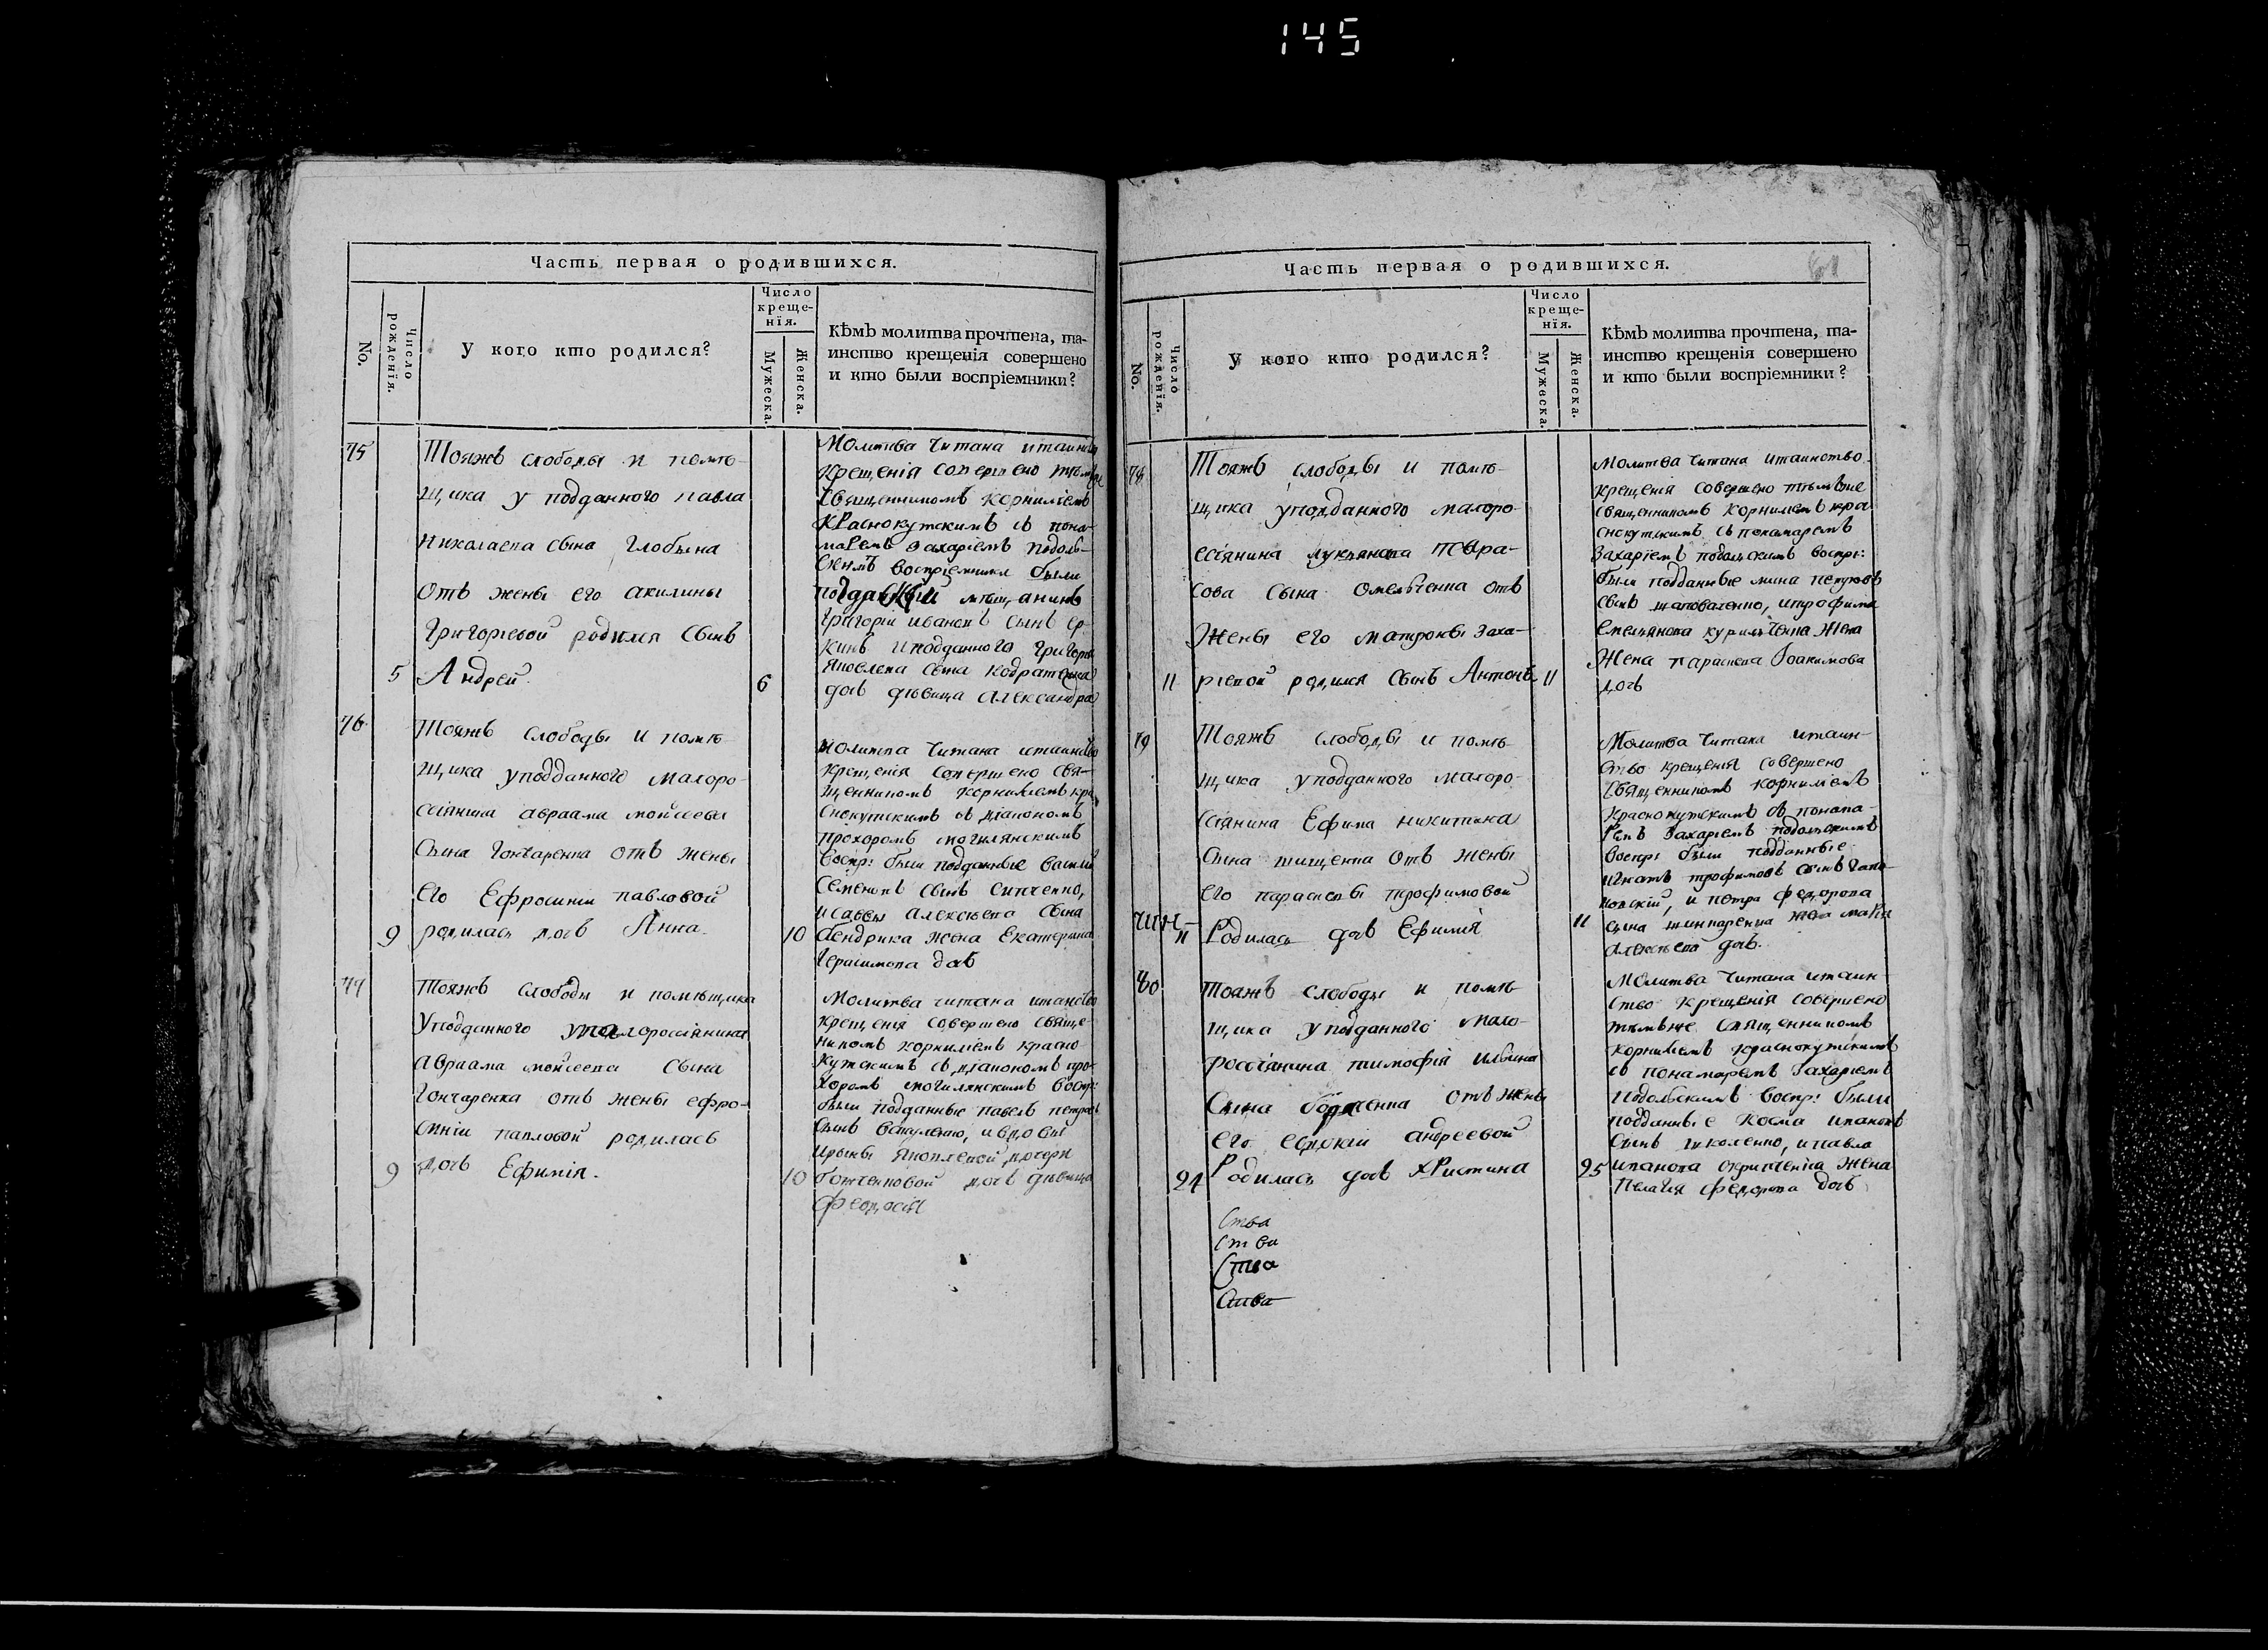 145
Часть первая о родившихся.
No.
Число рожденїя.
У кого кто родился?
Число крещенїя.
Мужеска.
Женска.
Кѣмъ молитва прочтена, та-
инство крещенія совершено
и кто были воспріемники?
75
Тояжъ слободы и помѣ-
щика у подданного павла
Николаева сына Глобина
отъ жены его акилины
Григоріевой родился сынъ
5 Андрей 6
Молитва читана и таинство
крещенія совершено тѣмъже
священникомъ Корниліемъ
Краснокутскимъ съ поно-
маремъ Захаріемъ Подоль-
скимъ воспріемники были
мѣщанинъ
Григорій Ивановъ сынъ
и подданного Григорія
Яковлева сына
дочь дѣвица Александра
76
Тояжъ слободы и помѣ-
щика у подданного малоро-
ссіянина авраама мойсеева
сына Гончаренка отъ жены
его Ефросиніи павловой
9 родилась дочь Анна. 10
Молитва читана и таинство
крещенія совершено свя-
щенникомъ Корниліемъ Кра
снокутскимъ съ діакономъ
прохоромъ могилянскимъ
воспр: были подданные василій
Семеновъ сынъ
и саввы Алексѣева сына
бендрика жена Екатерина
Герасимова дочь
77
Тояжъ слободы и помѣщика
у подданного малороссіянина
Авраама мойсеева сына
Гончаренка отъ жены ефро-
синіи павловой родилась
9 дочь Ефимія. 10
Молитва читана и таинство
крещенія совершено свяще-
никомъ корниліемъ красно
кутскимъ съ діакономъ про-
хоромъ могилянскимъ воспр:
были подданные павелъ петровъ
сынъ и вдовы
Ирины Яковлевой дочери
дочь дѣвица
Феодосія
Часть первая о родившихся.
61
No.
Число рожденїя.
У кого кто родился?
Число крещенїя.
Мужеска.
Женска.
Кѣмъ молитва прочтена, та-
инство крещенія совершено
и кто были воспріемники?
78
Тояжъ слободы и помѣ-
щика у подданного малоро-
ссіянина лукьяна Тара-
сова сына Омельченка отъ
Жены его матроны Заха-
11 ріевой родился сынъ Антонъ 11
Молитва читана и таинство
крещенія совершено тѣмъже
священникомъ Корниліемъ кра
снокутскимъ съ пономаремъ
Захаріемъ подольскимъ воспр:
были подданные мина
сынъ шаповаленко, и трофима
Емельянова жена
Жена параскева Іоакимова
дочь
79
Тояжъ слободы и помѣ-
щика у подданного малоро-
ссіянина Ефима никитина
сына тищенка отъ жены
его параскевы трофимовой
11 Родилась дочь Ефимія 11
Молитва читана и таин-
ство крещенія совершено
священникомъ корниліемъ
краснокутскимъ съ понома-
ремъ Захаріемъ подольскимъ
воспр: были подданные
игнатъ трофимовъ сынъ
и петра федорова
сына жена
Алексѣева дочь.
80
Тояжъ слободы и помѣ-
щика у подданного мало-
россіянина тимофія ильина
сына отъ жены
его андреевой
24 Родилась дочь Христина 25
Молитва читана и таин-
ство крещенія совершено
тѣмъже священникомъ
корниліемъ краснокутскимъ
съ пономаремъ Захаріемъ
подольскимъ воспр: были
подданные Косма ивановъ
сынъ и павла
иванова жена
пелагія федорова дочь
Ства
Ства
Ства